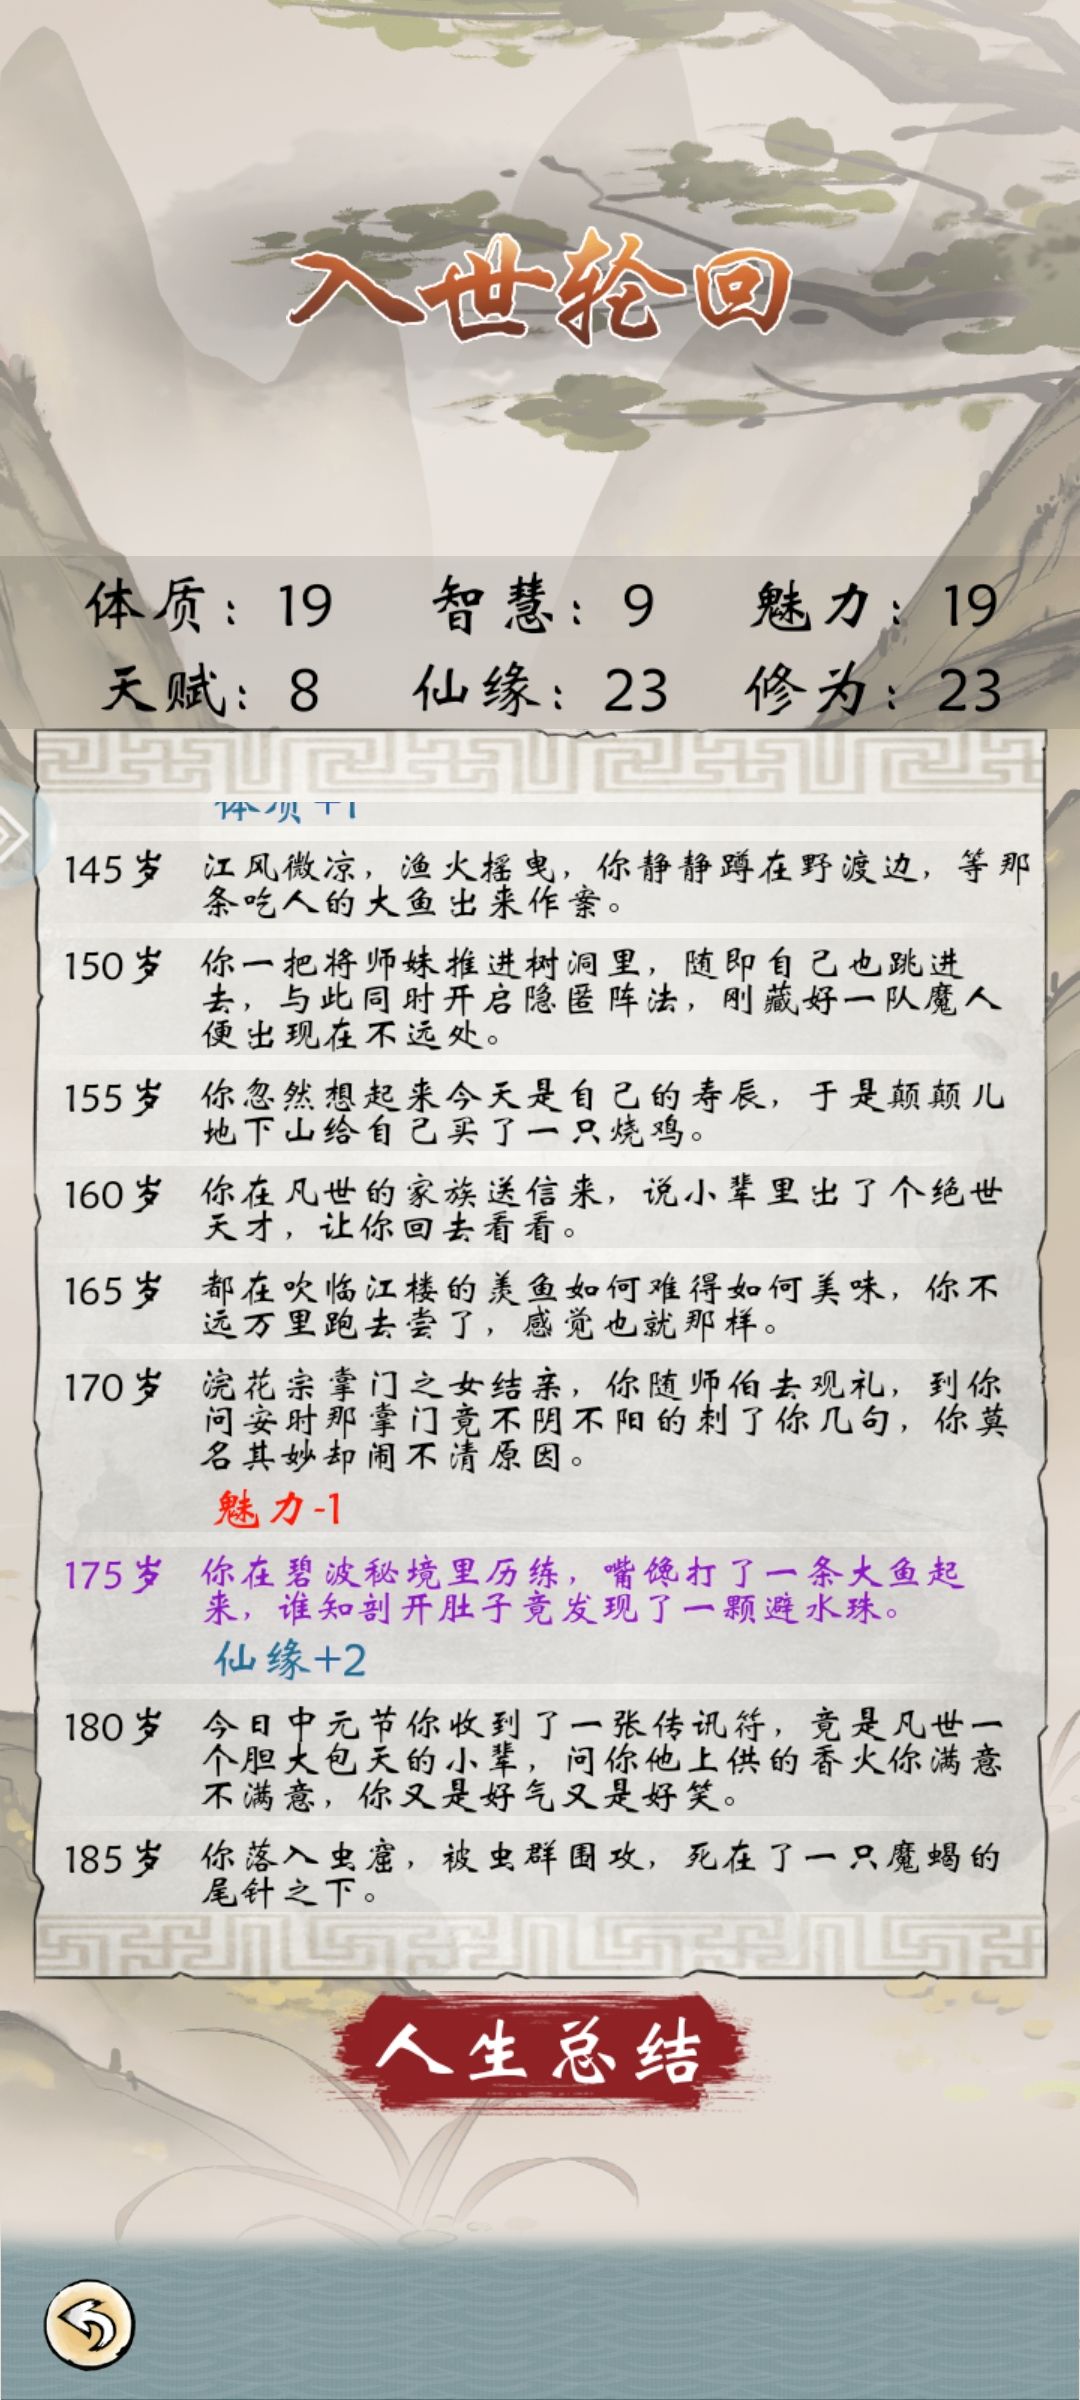 入世轮回
体质：19 智慧：9 魅力：19
天赋：8 仙缘：23 修为：23
体质+1
145岁 江风微凉，渔火摇曳，你静静蹲在野渡边，等那
条吃人的大鱼出来作案。
150岁 你一把将师妹推进树洞里，随即自己也跳进
去，与此同时开启隐匿阵法，刚藏好一队魔人
便出现在不远处。
155岁 你忽然想起来今天是自己的寿辰，于是颠颠儿
地下山给自己买了一只烧鸡。
160岁 你在凡世的家族送信来，说小辈里出了个绝世
天才，让你回去看看。
165岁 都在吹临江楼的羡鱼如何难得如何美味，你不
远万里跑去尝了，感觉也就那样。
170岁 浣花宗掌门之女结亲，你随师伯去观礼，到你
问安时那掌门竟不阴不阳的刺了你几句，你莫
名其妙却闹不清原因。
魅力-1
175岁 你在碧波秘境里历练，嘴馋打了一条大鱼起
来，谁知剖开肚子竟发现了一颗避水珠。
仙缘+2
180岁 今日中元节你收到了一张传讯符，竟是凡世一
个胆大包天的小辈，问你他上供的香火你满意
不满意，你又是好气又是好笑。
185岁 你落入虫窟，被虫群围攻，死在了一只魔蝎的
尾针之下。
人生总结